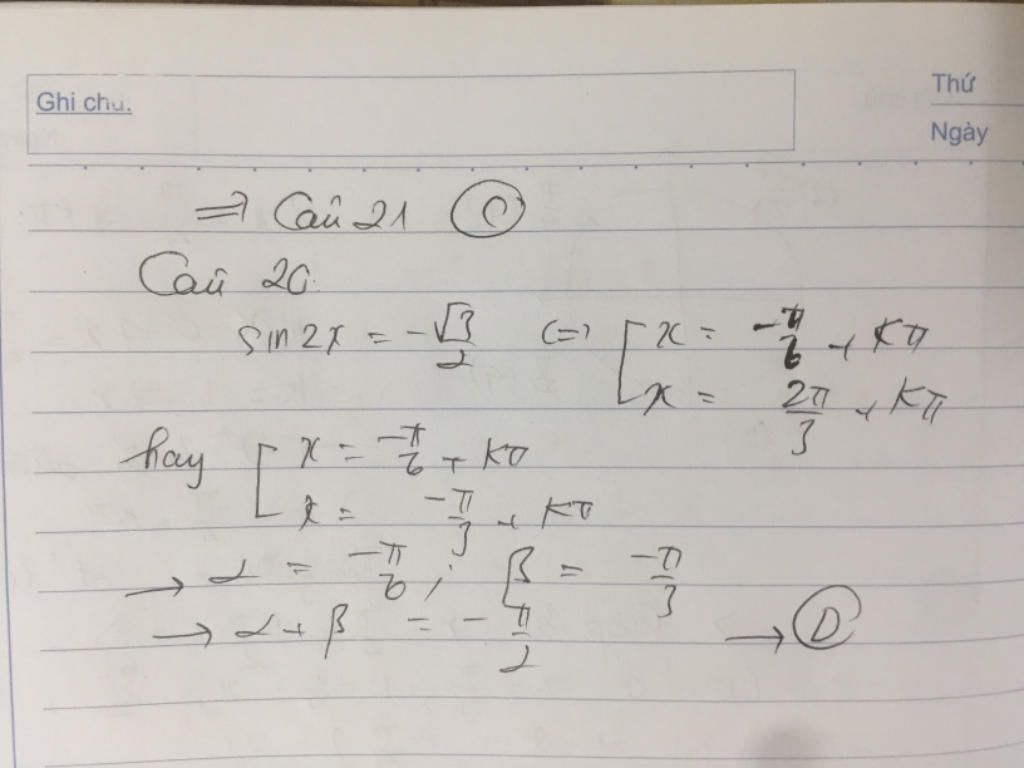 Ghi chú.
Thứ
Ngày
⇒ Câu 21 (C)
Câu 20.
sin2x = -√3/2 (=) [ x = -π/6 + Kπ
x = 2π/3 + Kπ
hay [ x = -π/6 + Kπ
x = -π/3 + Kπ
→ α = -π/6 ; β = -π/3
→ α + β = -π/2 → (D)